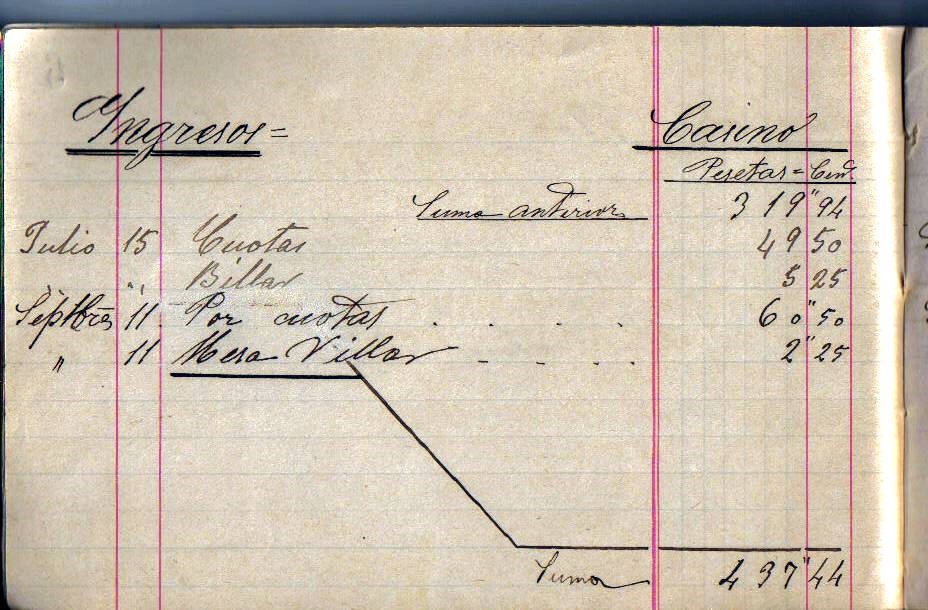 Ingresos= Casino
Pesetas=Cent.
Suma anterior 319"94
Julio 15 Cuotas 49 50
" " Billar 5 25
Sepbre 11. Por cuotas . . . . 60"50
" 11 Mesa Villar - - - - 2"25
Suma 437"44